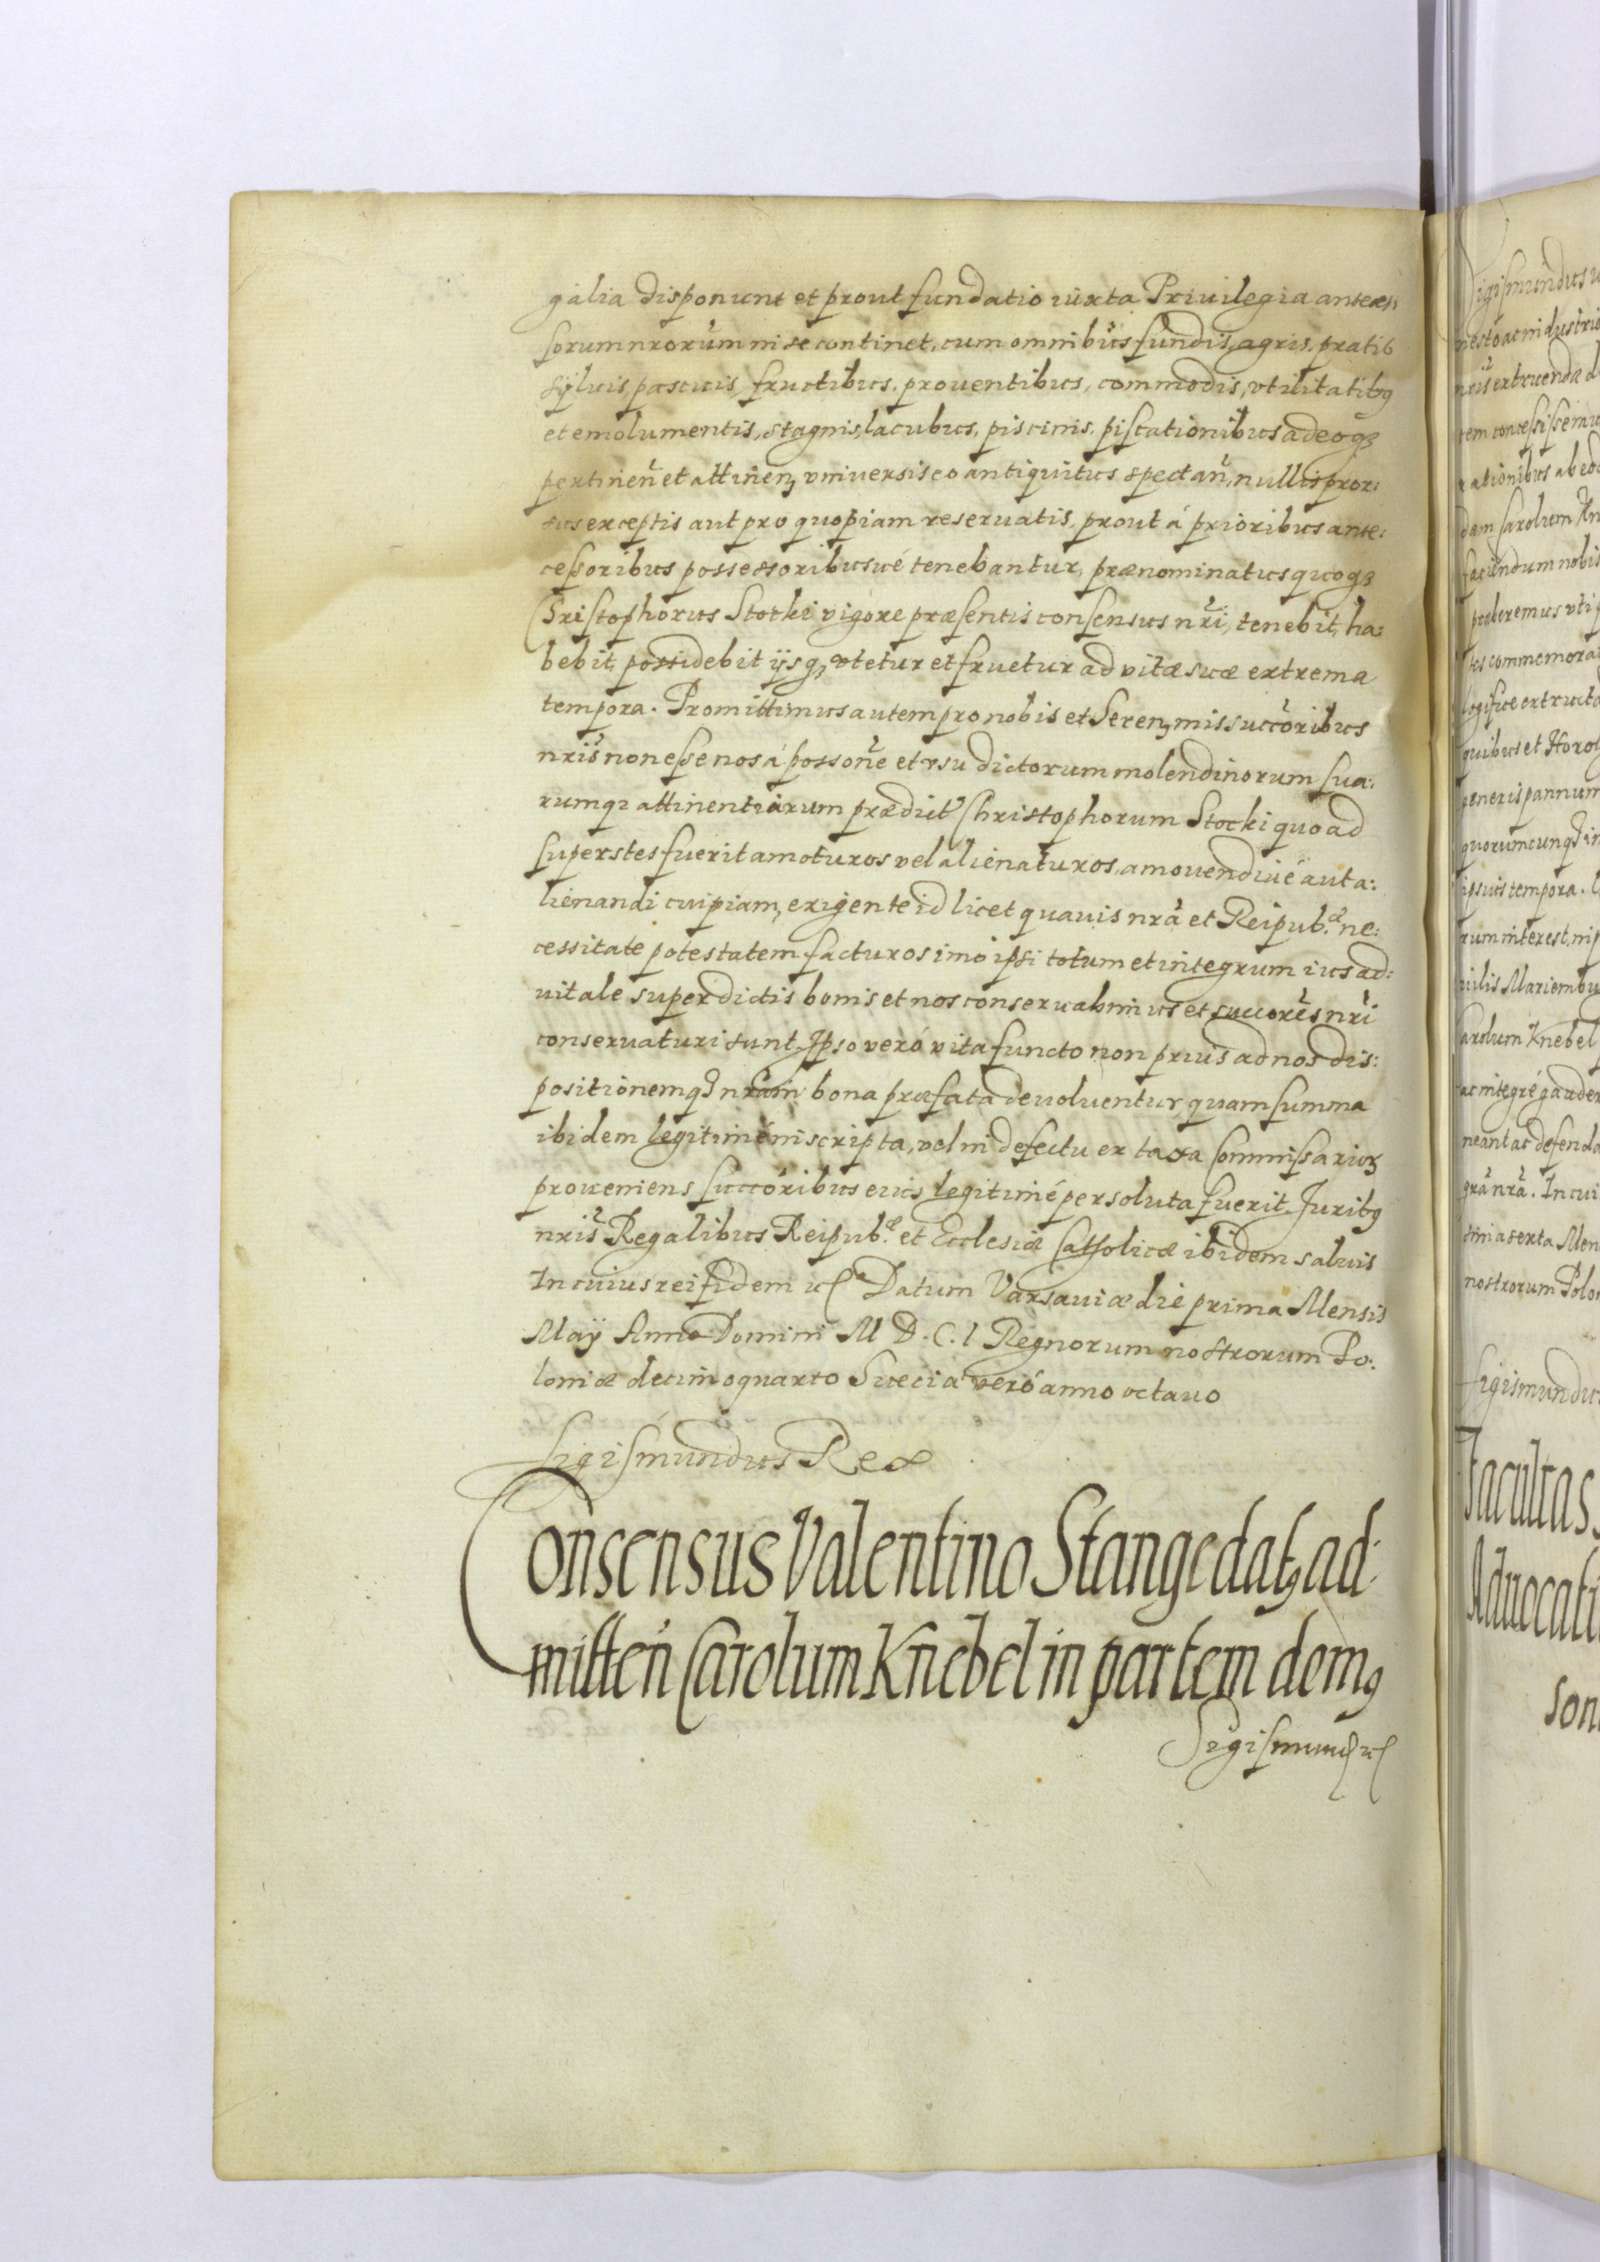 galia disponunt et prout fundatio iuxta Priuilegia anteces
sorum nrorum in se continet, cum omnibus fundis, agris, pratis
syluis, pascuis, fructibus, prouentibus, commodis, vtilitatibꝰ
et emolumentis, stagnis, lacubus, piscinis, piscationibus adeoqꝫ
pertinen et attinen, vniuersis eo antiquitus spectan, nullis pror:
sus exceptis aut pro quopiam reseruatis, prout á prioribus ante:
cessoribus possessoribusué tenebantur, prænominatus quoqꝫ
Christophorus Stocki vigore præsentis consensus nri, tenebit, ha:
bebit, possidebit ijsqꝫ vtetur et fruetur ad vitæ suæ extrema
tempora. Promittimus autem pro nobis et Serenꝫmis succoribus
nris non esse nos á possone et vsu dictorum molendinorum sua:
rumqꝫ attinentiarum prædict Christophorum Stocki quoad
superstes fuerit amoturos vel alienaturos, amouendiué aut a:
lienandi cuipiam, exigente id licet quauis nra et Reipub.æ ne:
cessitate potestatem facturos imo ipsi totum et integrum ius ad:
uitale super dictis bonis et nos conseruabimus et succores nri
conseruaturi sunt. Ipso veró vita functo non prius ad nos dis:
positionemqꝫ nram bona præfata deuoluentur, quam summa
ibidem legitimé inscripta, vel in defectu ex taxa Commissarioꝝ
proueniens succoribus eius legitimé persoluta fuerit. Juribꝰ
nris Regalibus Reipub.æ et Ecclesiæ Catholicæ ibidem saluis
In cuius rei fidem etc Datum Varsauiæ die prima Mensis
Maÿ Anno Domini M D. C. I Regnorum nostrorum Po:
loniæ decimoquarto Sueciæ veró anno octauo
Sigismundus Rex
Consensus Valentino Stange datꝫ ad:
mitten Carolum Knebel in partem domꝰ
Sigismund etc